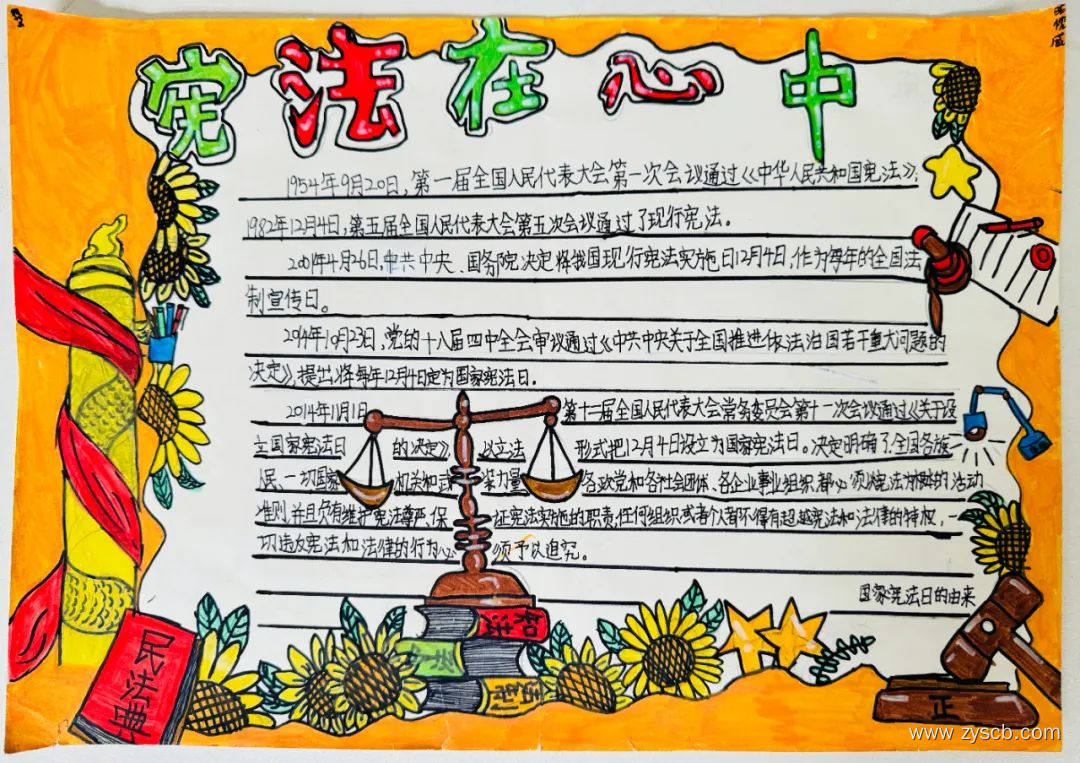 宪法在心中
1954年9月20日,第一届全国人民代表大会第一次会议通过《中华人民共和国宪法》;
1982年12月4日,第五届全国人民代表大会第五次会议通过了现行宪法。
2001年4月26日,中共中央、国务院决定将我国现行宪法实施日12月4日,作为每年的全国法
制宣传日。
2014年10月23日,党的十八届四中全会审议通过《中共中央关于全国推进依法治国若干重大问题的
决定》,提出将每年12月4日定为国家宪法日。
2014年11月1日 第十二届全国人民代表大会常务委员会第十一次会议通过《关于设
立国家宪法日 的决定》, 以立法 形式把12月4日设立为国家宪法日。决定明确了,全国各族
人民、一切国家 机关和武 装力量 各政党和各社会团体、各企业事业组织,都必须以宪法为根本的活动
准则,并且负有维护宪法尊严,保 证宪法实施的职责,任何组织或者个人都不得有超越宪法和法律的特权,一
切违反宪法和法律的行为必 须予以追究。
国家宪法日的由来
民法典
知法
守法
正
www.zyscb.com